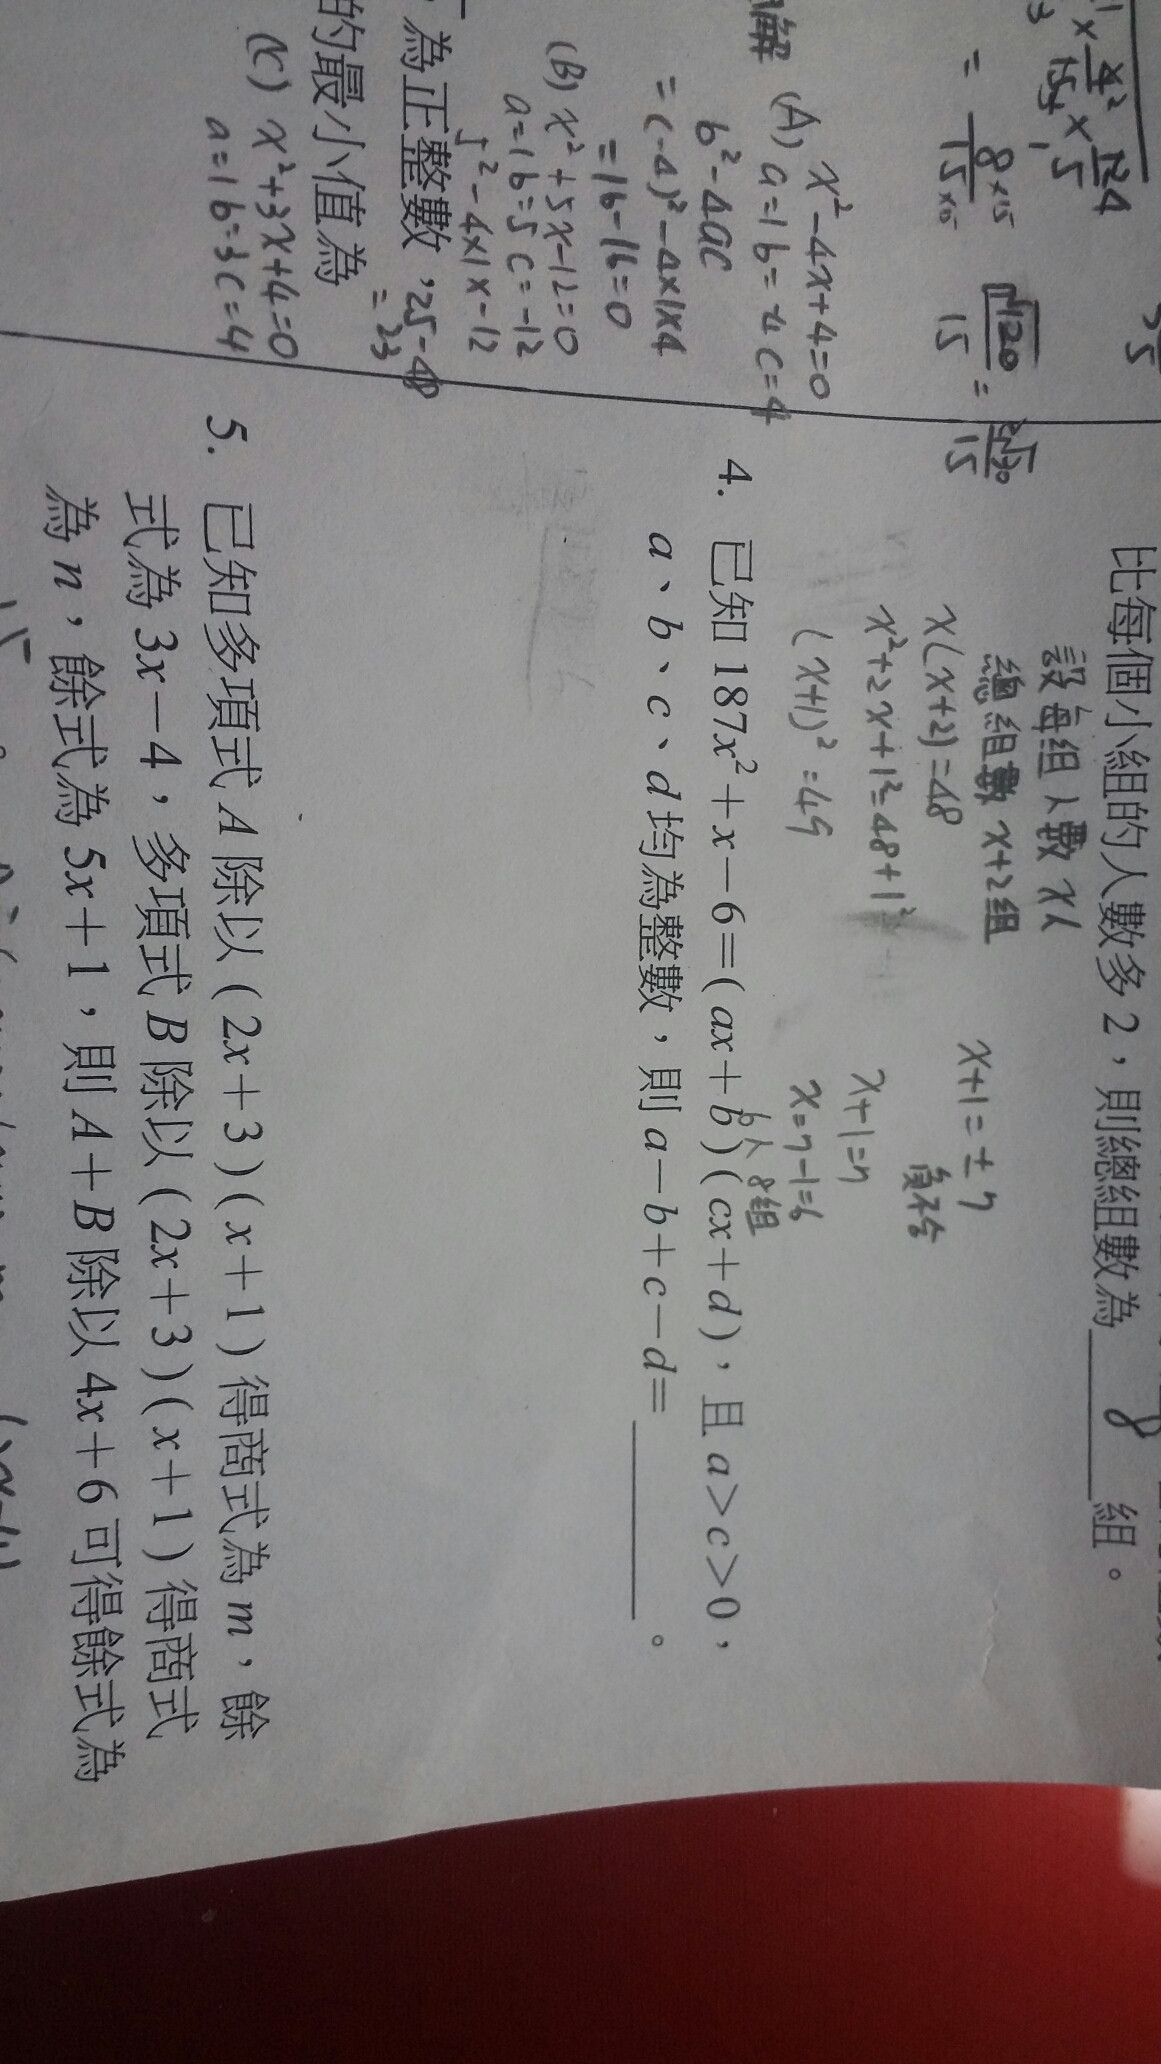 比每個小組的人數多2，則總組數為 8 組。
設每組人數x人
總組數x+2組
x(x+2)=48
x²+2x+1²=48+1²
(x+1)²=49
x+1=±7
負不合
x+1=7
x=7-1=6
6人 8組
4. 已知187x²+x-6=(ax+b)(cx+d)，且a>c>0，
a、b、c、d均為整數，則a-b+c-d= 。
5. 已知多項式A除以(2x+3)(x+1)得商式為m，餘
式為3x-4，多項式B除以(2x+3)(x+1)得商式
為n，餘式為5x+1，則A+B除以4x+6可得餘式為
= 8×15 / 15×15
√120 / 15 = 2√30 / 15
解 (A) x²-4x+4=0
a=1 b=-4 c=4
b²-4ac
=(-4)²-4×1×4
=16-16=0
(B) x²+5x-12=0
a=1 b=5 c=-12
5²-4×1×-12
為正整數，
25-48
=23
的最小值為
(C) x²+3x+4=0
a=1 b=3 c=4